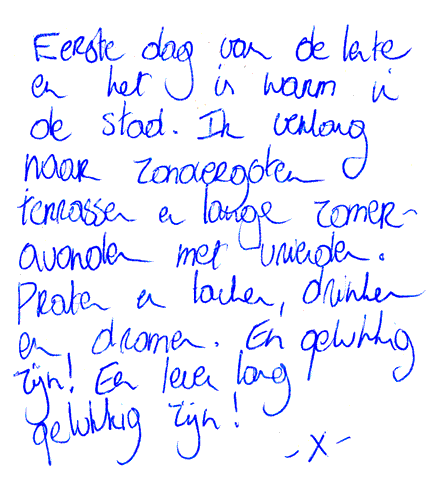 Eerste dag van de lente
en het is warm in
de stad. Ik verlang
naar zonovergoten
terrassen en lange zomer-
avonden met vrienden.
Praten en lachen, drinken
en dromen. En gelukkig
zijn! Een leven lang
gelukkig zijn!
- X -